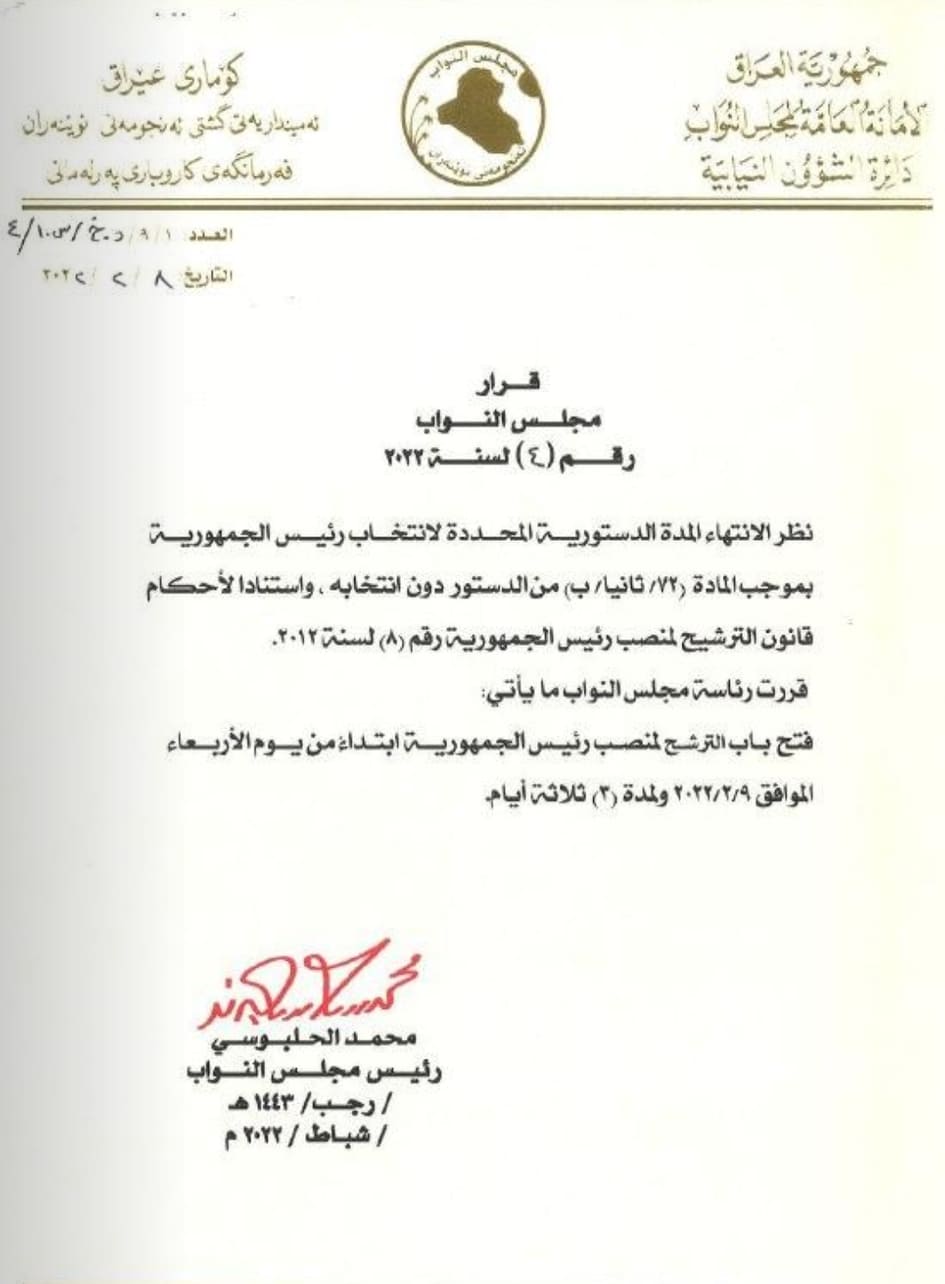 جمهورية العراق
الأمانة العامة لمجلس النواب
دائرة الشؤون النيابية
مجلس النواب
ئه نجومه نى نوێنه ران
كۆماری عێراق
ئه مینداریه تی گشتی ئه نجومه نی نوێنه ران
فه رمانگه ی کاروباری په رله مانی
العدد: ٩/١/د.خ/س١٠/٤
التاريخ: ٨ / ٢ / ٢٠٢٢
قرار
مجلس النواب
رقم (٤) لسنة ٢٠٢٢
نظر الانتهاء المدة الدستورية المحددة لانتخاب رئيس الجمهورية
بموجب المادة (٧٢/ ثانيا/ ب) من الدستور دون انتخابه ، واستنادا لأحكام
قانون الترشيح لمنصب رئيس الجمهورية رقم (٨) لسنة ٢٠١٢.
قررت رئاسة مجلس النواب ما يأتي:
فتح باب الترشح لمنصب رئيس الجمهورية ابتداءً من يوم الأربعاء
الموافق ٢٠٢٢/٢/٩ ولمدة (٣) ثلاثة أيام.
محمد الحلبوسي
رئيس مجلس النواب
/ رجب/ ١٤٤٣ هـ
/ شباط / ٢٠٢٢ م